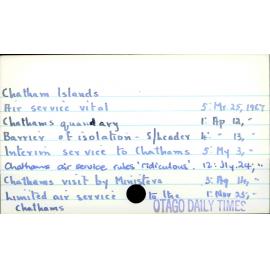 Chatham Islands
Air service vital 5: Mr 25, 1967
Chathams quandary 1: Ap 12, -
Barrier of isolation - S/leader 4: " 13, -
Interim service to Chathams 5: My 3, -
Chathams air service rules 'ridiculous'. 12: Jly. 24; "
Chathams visit by Ministers 5: Ag 14, -
Limited air service to the Chathams 1: Nov 25; -
OTAGO DAILY TIMES